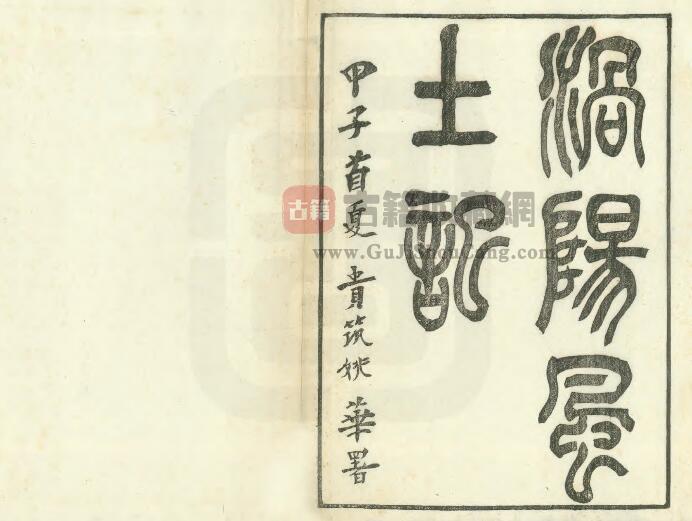 渦陽風
土記
甲子首夏 貴筑姚華署
古籍 古籍收藏網
www.GuJiShouCang.com